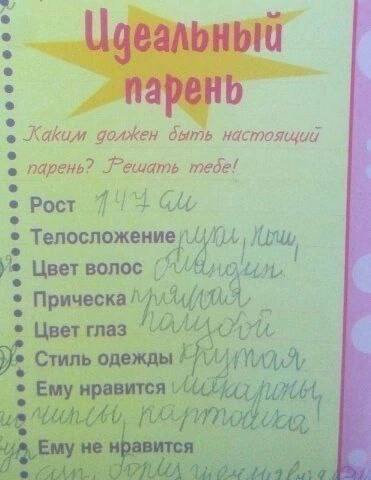 Идеальный
парень
Каким должен быть настоящий
парень? Решать тебе!
Рост 147 см
Телосложение руки, ноги,
Цвет волос блондин
Прическа прямая
Цвет глаз галубой
Стиль одежды крутая
Ему нравится макароны,
чипсы, картошка
Ему не нравится
суп, борщ